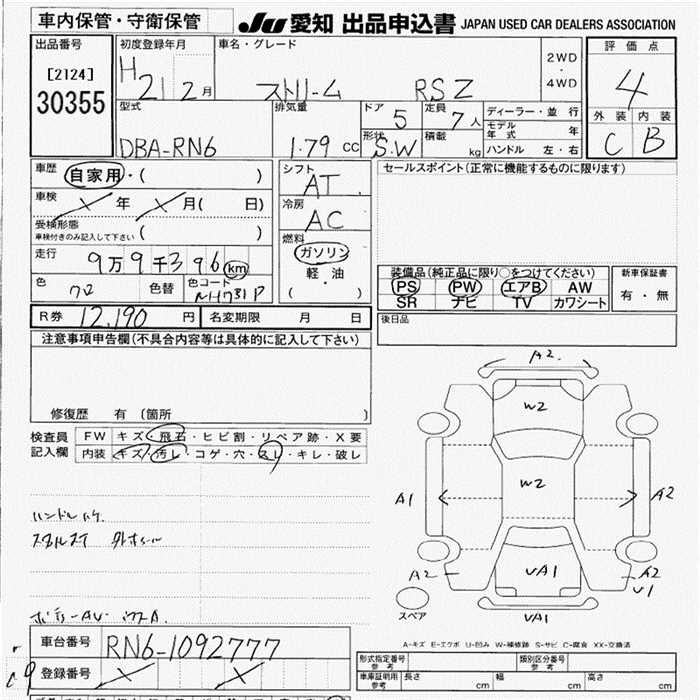 車内保管・守衛保管
JU 愛知 出品申込書 JAPAN USED CAR DEALERS ASSOCIATION
出品番号 初度登録年月 車名・グレード 評価点
[2124] H 21 2月 ストリーム RSZ 2WD・4WD 4
30355
型式 排気量 ドア 5 定員 7人 ディーラー・並行 外装 内装
モデル年式 年
DBA-RN6 1.79 cc 形状 S.W 積載 kg ハンドル 左・右 C B
車歴 自家用・( ) シフト AT セールスポイント(正常に機能するものに限ります)
車検 年 月( 日) 冷房 AC
受検形態
車検付きのみ記入して下さい ( ) 燃料
走行 9万9千396 km ガソリン
軽・油
( )
装備品(純正品に限り○をつけてください) 新車保証書
PS PW エアB AW 有・無
SR ナビ TV カワシート
色 色替 色コード NH731P
後日品
R券 12,190 円 名変期限 月 日
注意事項申告欄(不具合内容等は具体的に記入して下さい)
修復歴 有 (箇所 )
検査員 FW キズ・飛石・ヒビ割・リペア跡・X要
記入欄 内装 キズ・汚レ・コゲ・穴・スレ・キレ・破レ
A2
W2
W2
A1 A2
A2 VA1 V1
スペア VA1
ハンドル
A-キズ E-エクボ U-凹み W-補修跡 S-サビ C-腐食 XX-交換済
車台番号 RN6-1092777
登録番号
形式指定番号 参考 類別区分番号 参考
車庫証明用 参考 長さ cm 幅 cm 高さ cm